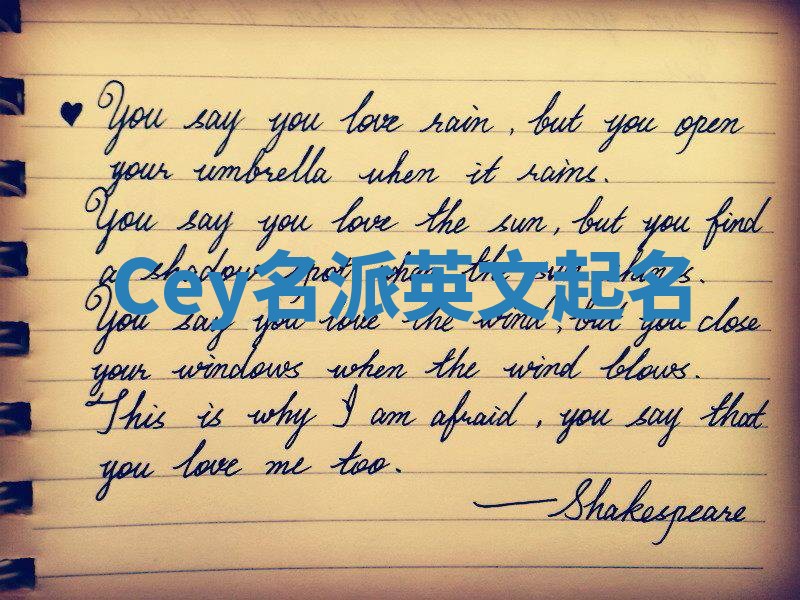 ♥ You say you love rain, but you open
your umbrella when it rains.
You say you love the sun, but you find
a shadow spot when the sun shines.
Cey名派英文起名
You say you love the wind, but you close
your windows when the wind blows.
This is why I am afraid, you say that
you love me too.
—Shakespeare